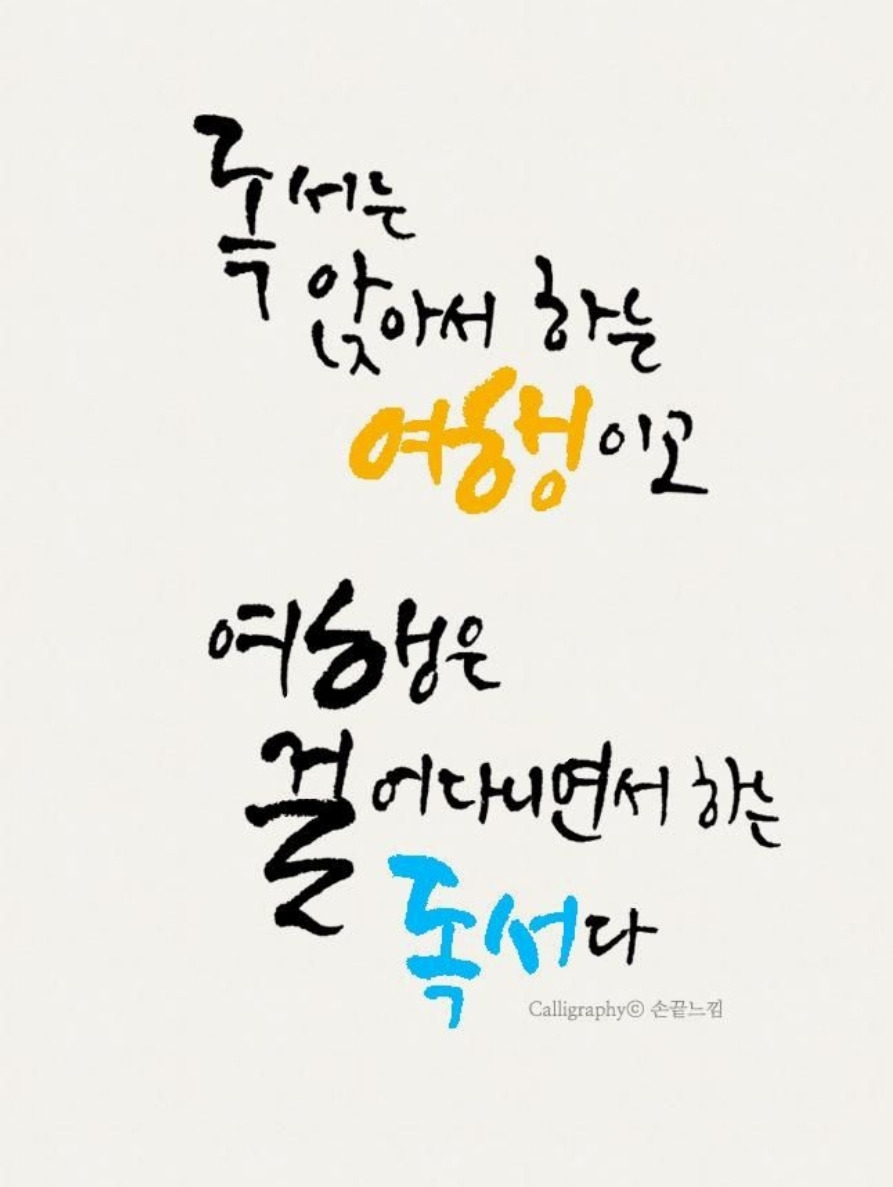 독서는
앉아서 하는
여행이고
여행은
걸어다니면서 하는
독서다
Calligraphyⓒ 손끝느낌